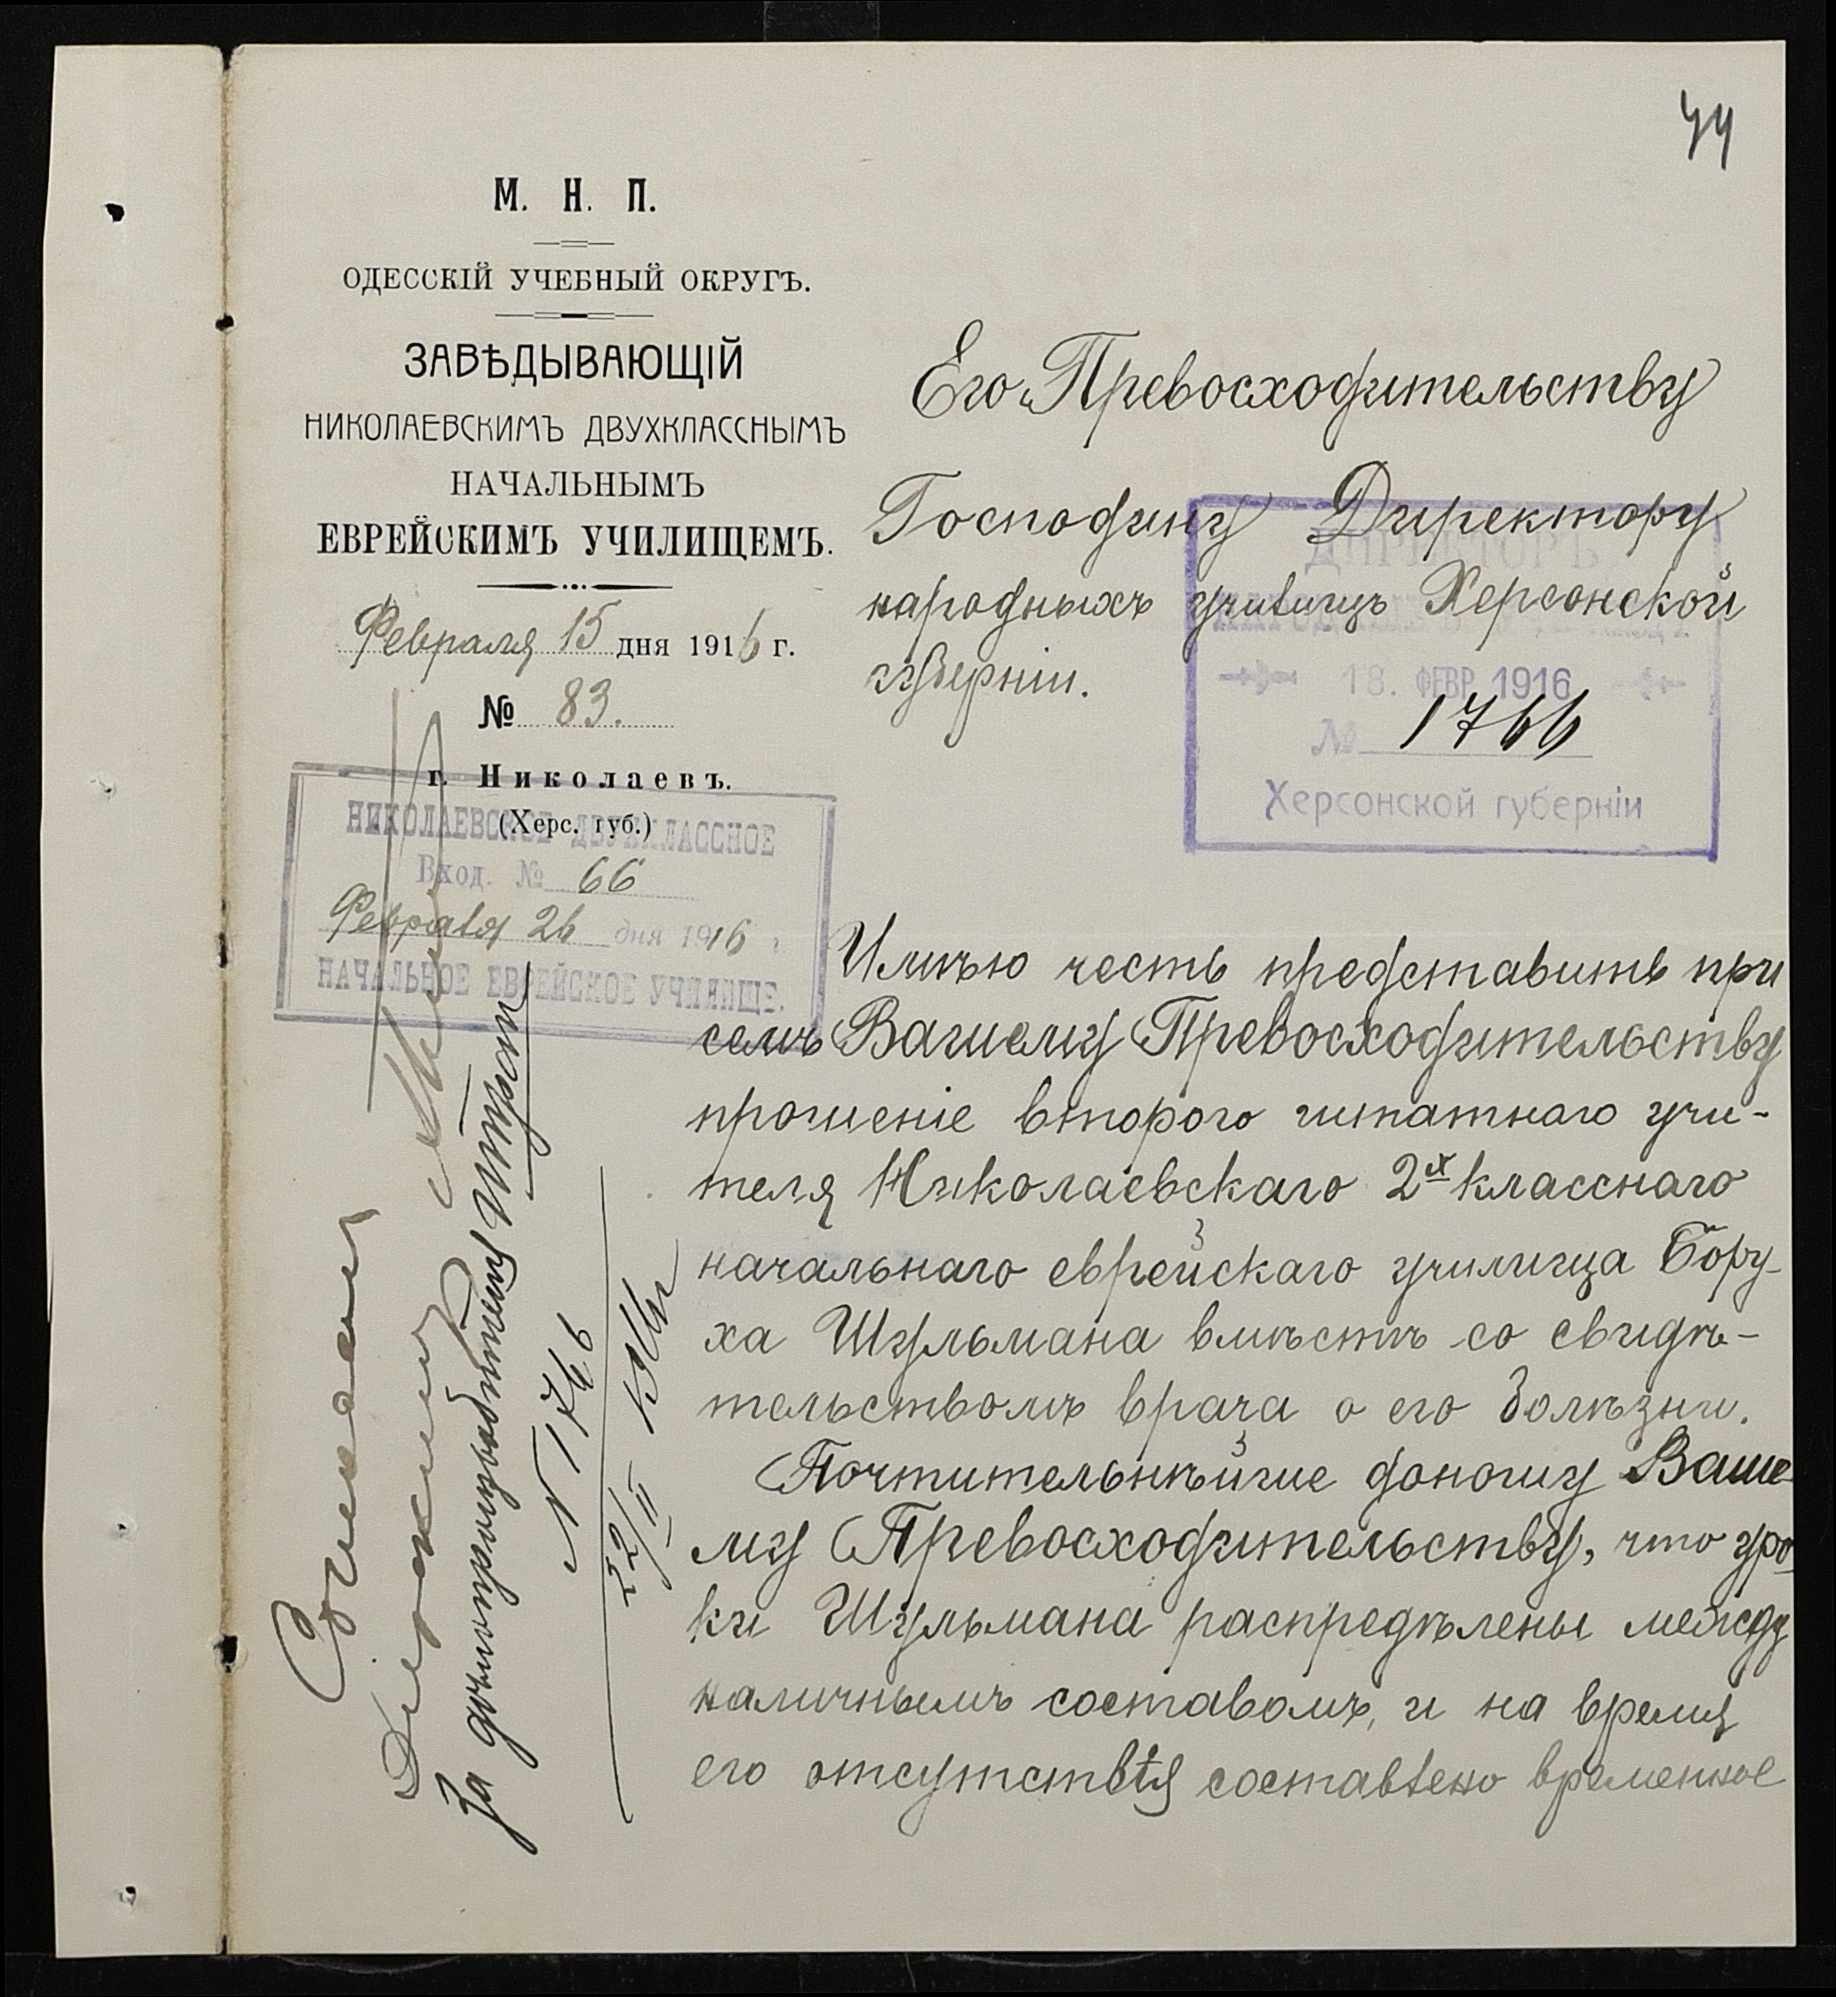 44
М. Н. П.
ОДЕССКІЙ УЧЕБНЫЙ ОКРУГЪ.
ЗАВѢДЫВАЮЩІЙ
НИКОЛАЕВСКИМЪ ДВУХКЛАССНЫМЪ
НАЧАЛЬНЫМЪ
ЕВРЕЙСКИМЪ УЧИЛИЩЕМЪ.
Февраля 15 дня 1916 г.
№ 83.
г. Николаевъ.
(Херс. губ.)
НИКОЛАЕВСКОЕ ДВУХКЛАССНОЕ
Вход. № 66
Февраля 26 дня 1916 г.
НАЧАЛЬНОЕ ЕВРЕЙСКОЕ УЧИЛИЩЕ.
Его Превосходительству
Господину Директору
народныхъ училищъ Херсонской
губерніи.
ДИРЕКТОРЪ
18. ФЕВР. 1916
№ 1766
Херсонской губерніи
Имѣю честь представить при
семъ Вашему Превосходительству
прошеніе второго штатнаго учи-
теля Николаевскаго 2х класснаго
начальнаго еврейскаго училища Бору-
ха Шульмана вмѣстѣ со свидѣ-
тельствомъ врача о его болѣзни.
Почтительнѣйше доношу Ваше-
му Превосходительству, что уро-
ки Шульмана распредѣлены между
наличнымъ составомъ, и на время
его отсутствія составлено временное
За дѣлопроизводителя
N 1766
22/II